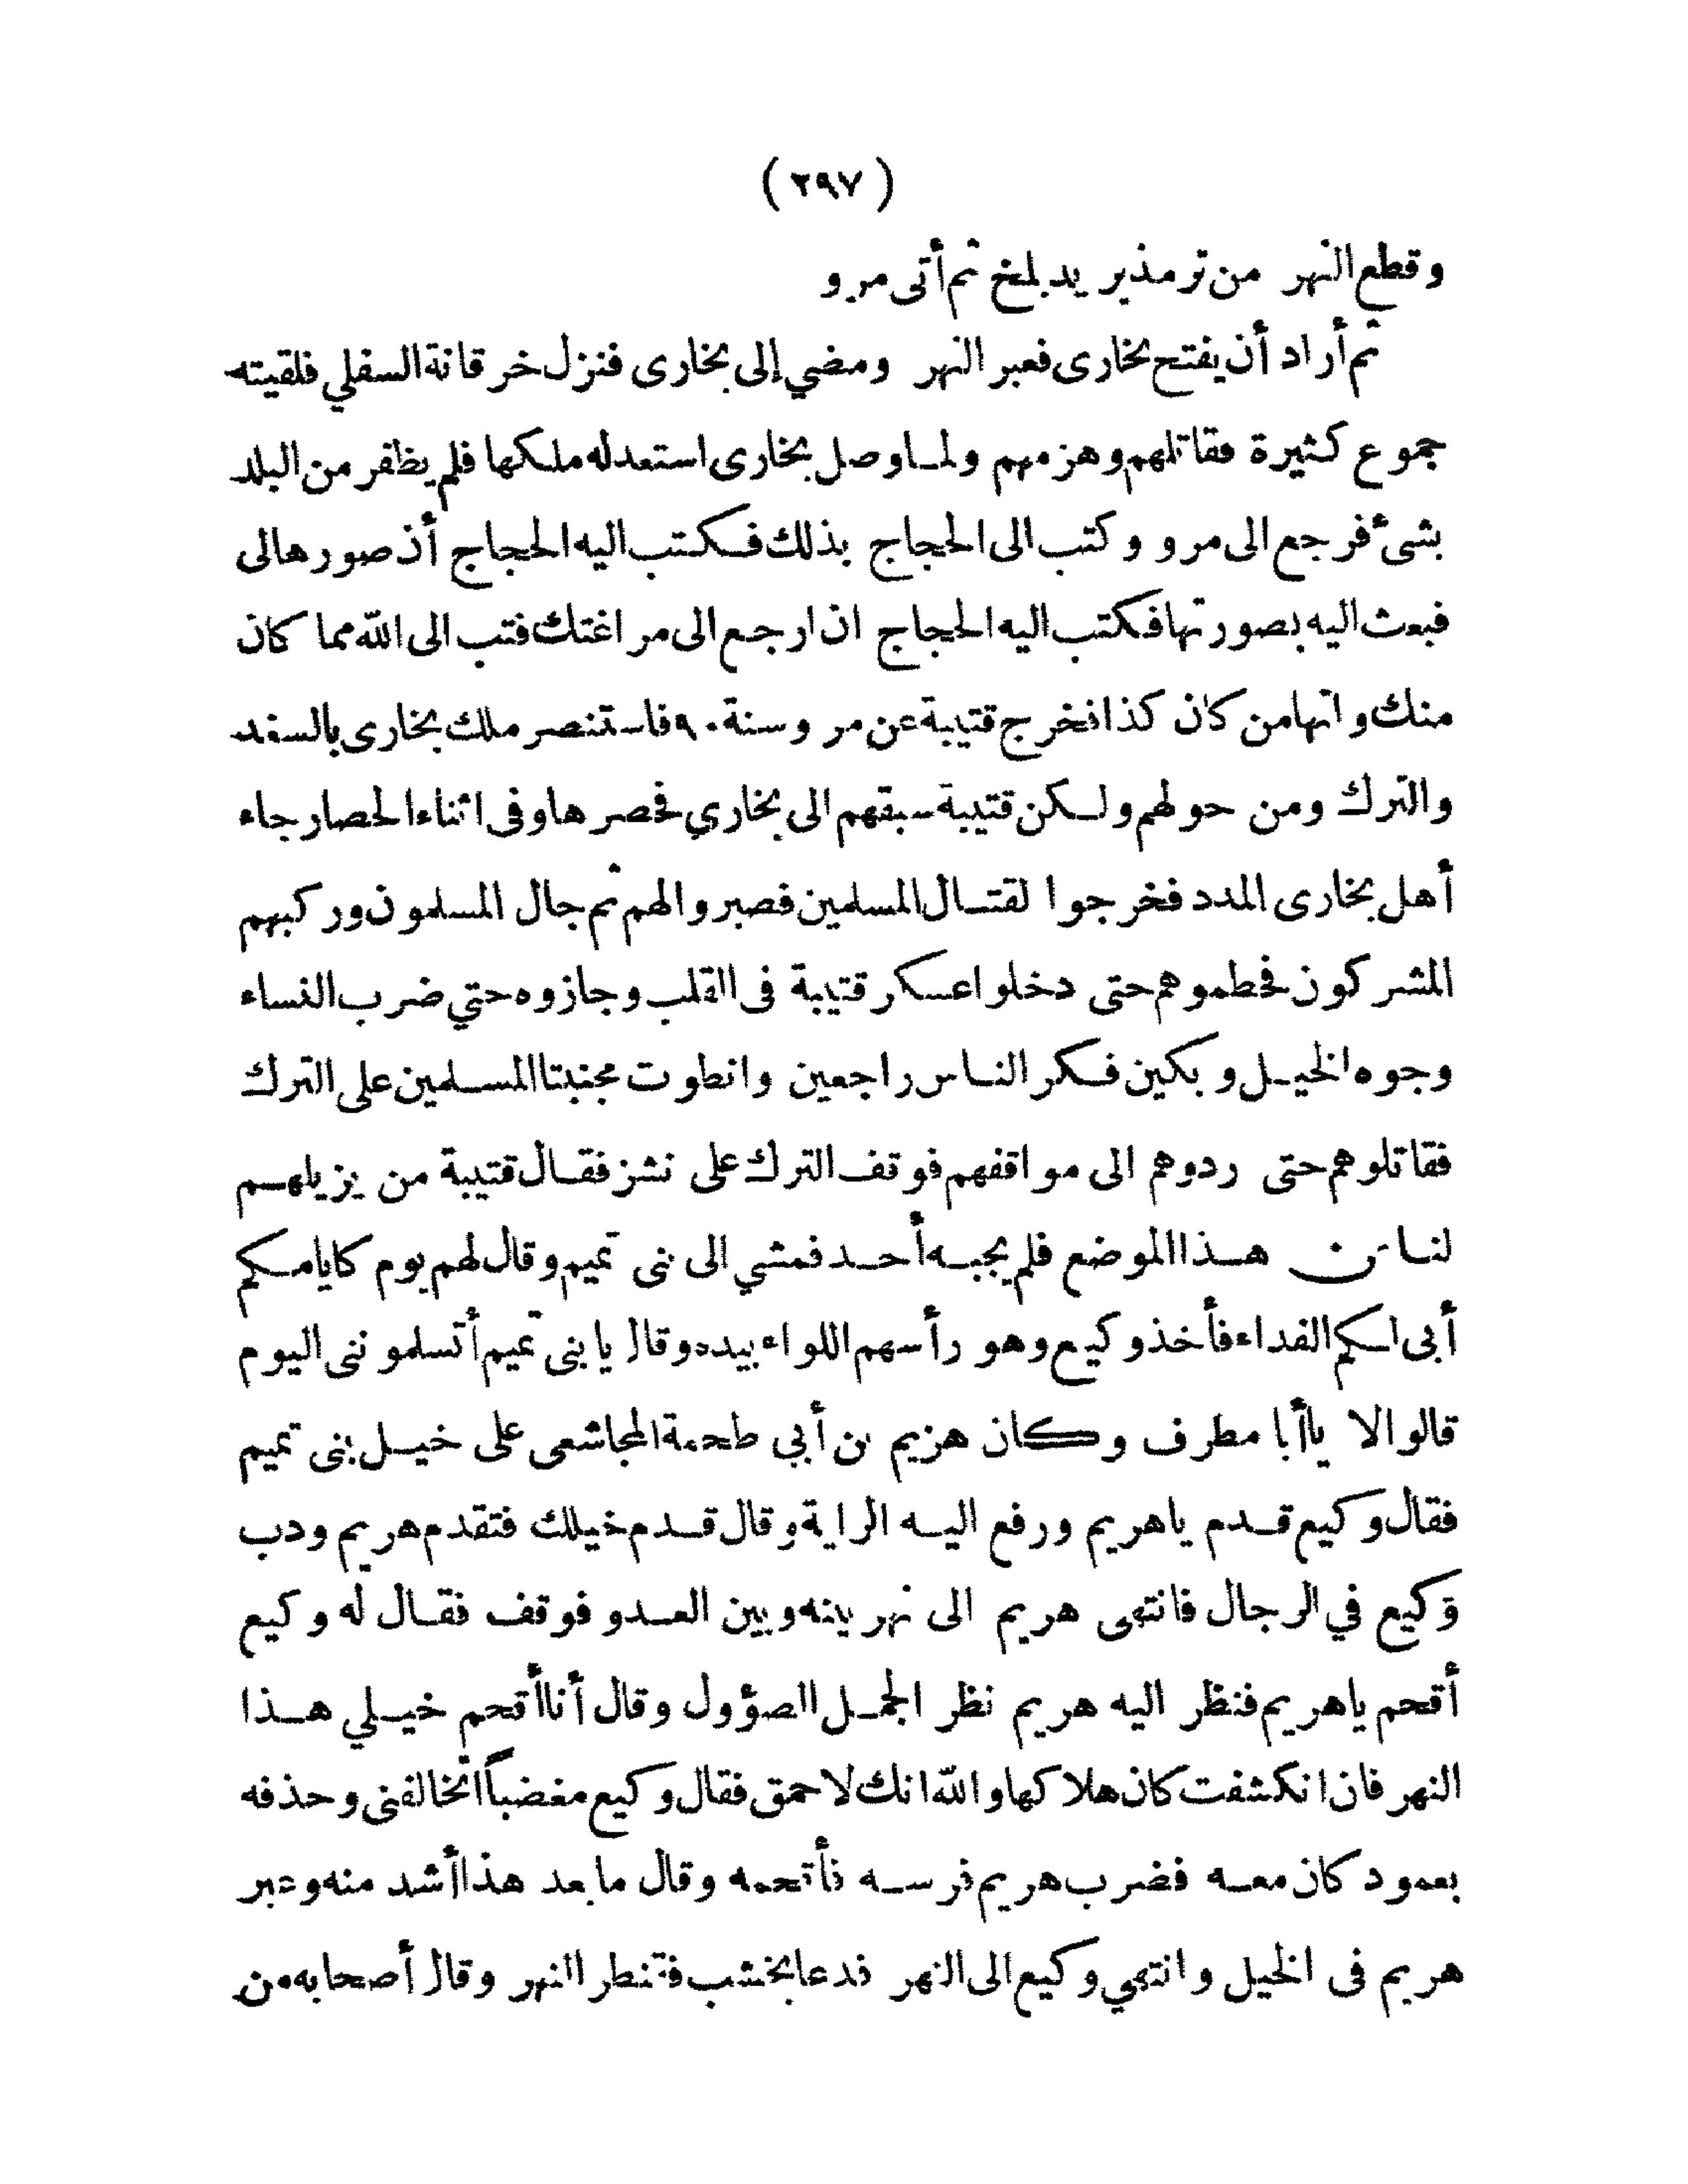 ( ٢٩٧ )
وقطع النهر من ترمذ يريد بلخ ثم أتى مرو
ثم أراد أن يفتح بخارى فعبر النهر ومضي إلى بخارى فنزل خرقانة السفلي فلقيته
جموع كثيرة فقاتلهم وهزمهم ولما وصل بخارى استعد له ملكها فلم يظفر من البلد
بشئ فرجع الى مرو وكتب الى الحجاج بذلك فكتب اليه الحجاج أن صورها لى
فبعث اليه بصورتها فكتب اليه الحجاج ان ارجع الى مراغتك فتب الى الله مما كان
منك واتها من كان كذا فخرج قتيبة عن مرو سنة ٩٠ فاستنصر ملك بخارى بالسغد
والترك ومن حولهم ولكن قتيبة سبقهم الى بخاري فحصرها وفى اثناء الحصار جاء
أهل بخارى المدد فخرجوا لقتال المسلمين فصبروا لهم ثم جال المسلمون وركبهم
المشركون فحطموهم حتى دخلوا عسكر قتيبة فى القلب وجازوه حتي ضرب النساء
وجوه الخيل وبكين فكر الناس راجعين وانطوت مجنبتا المسلمين على الترك
فقاتلوهم حتى ردوهم الى مواقفهم فوقف الترك على نشز فقال قتيبة من يزيلهم
لنا من هذا الموضع فلم يجبه أحد فمشي الى بنى تميم وقال لهم يوم كايامكم
أبى لكم الفداء فأخذ وكيع وهو رأسهم اللواء بيده وقال يا بنى تميم أتسلمو ننى اليوم
قالوا لا يا أبا مطرف وكان هزيم بن أبي طحمة المجاشعى على خيل بنى تميم
فقال وكيع قدم ياهريم ورفع اليه الراية وقال قدم خيلك فتقدم هريم ودب
وكيع في الرجال فانتهى هريم الى نهر بينه وبين العدو فوقف فقال له وكيع
أقحم ياهريم فنظر اليه هريم نظر الجمل الصؤول وقال أنا أقحم خيلي هذا
النهر فان انكشفت كان هلاكها والله انك لاحمق فقال وكيع مغضباً اتخالفنى وحذفه
بعمود كان معه فضرب هريم فرسه فأقحمه وقال ما بعد هذا أشد منه وعبر
هريم فى الخيل وانتهي وكيع الى النهر فدعا بخشب فقنطر النهر وقال أصحابه من